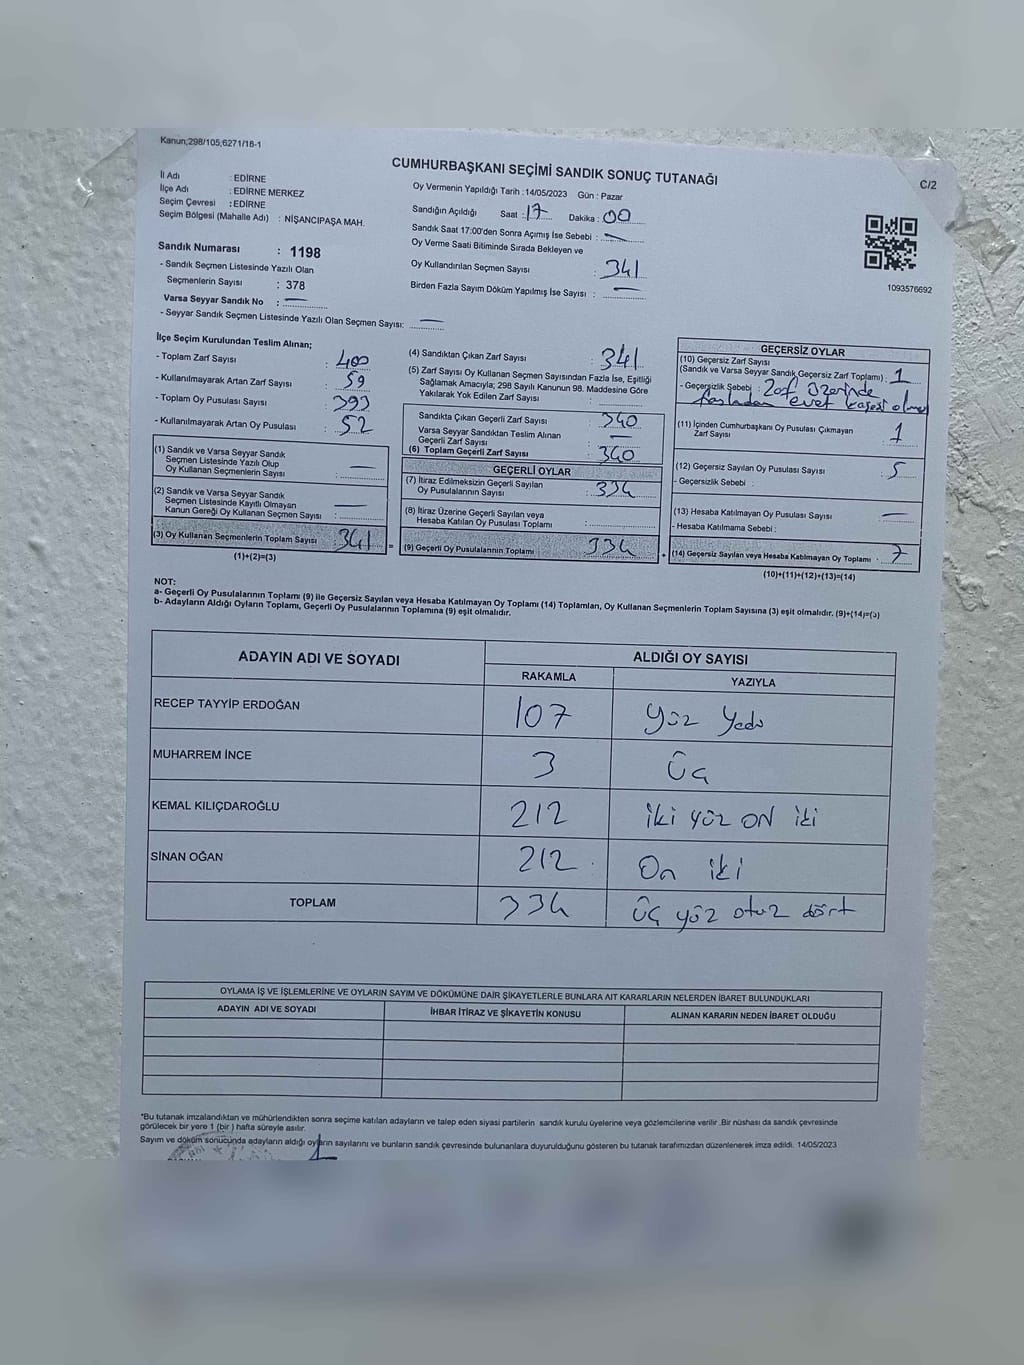 Kanun;298/105;6271/18-1
CUMHURBAŞKANI SEÇİMİ SANDIK SONUÇ TUTANAĞI
C/2
İl Adı : EDİRNE
İlçe Adı : EDİRNE MERKEZ
Seçim Çevresi : EDİRNE
Seçim Bölgesi (Mahalle Adı) : NİŞANCIPAŞA MAH.
Sandık Numarası : 1198
- Sandık Seçmen Listesinde Yazılı Olan
Seçmenlerin Sayısı : 378
Varsa Seyyar Sandık No : —
- Seyyar Sandık Seçmen Listesinde Yazılı Olan Seçmen Sayısı: —
Oy Vermenin Yapıldığı Tarih : 14/05/2023 Gün : Pazar
Sandığın Açıldığı Saat : 17 Dakika : 00
Sandık Saat 17:00'den Sonra Açımış İse Sebebi : —
Oy Verme Saati Bitiminde Sırada Bekleyen ve
Oy Kullandırılan Seçmen Sayısı : 341
Birden Fazla Sayım Döküm Yapılmış İse Sayısı : —
1093576692
İlçe Seçim Kurulundan Teslim Alınan;
- Toplam Zarf Sayısı : 400
- Kullanılmayarak Artan Zarf Sayısı : 59
- Toplam Oy Pusulası Sayısı : 393
- Kullanılmayarak Artan Oy Pusulası : 52
(1) Sandık ve Varsa Seyyar Sandık
Seçmen Listesinde Yazılı Olup
Oy Kullanan Seçmenlerin Sayısı : —
(2) Sandık ve Varsa Seyyar Sandık
Seçmen Listesinde Kayıtlı Olmayan
Kanun Gereği Oy Kullanan Seçmen Sayısı : —
(3) Oy Kullanan Seçmenlerin Toplam Sayısı : 341
(1)+(2)=(3)
(4) Sandıktan Çıkan Zarf Sayısı : 341
(5) Zarf Sayısı Oy Kullanan Seçmen Sayısından Fazla İse, Eşitliği
Sağlamak Amacıyla; 298 Sayılı Kanunun 98. Maddesine Göre
Yakılarak Yok Edilen Zarf Sayısı :
Sandıkta Çıkan Geçerli Zarf Sayısı : 340
Varsa Seyyar Sandıktan Teslim Alınan
Geçerli Zarf Sayısı : —
(6) Toplam Geçerli Zarf Sayısı : 340
GEÇERLİ OYLAR
(7) İtiraz Edilmeksizin Geçerli Sayılan
Oy Pusulalarının Sayısı : 334
(8) İtiraz Üzerine Geçerli Sayılan veya
Hesaba Katılan Oy Pusulası Toplamı :
(9) Geçerli Oy Pusulalarının Toplamı 334
GEÇERSİZ OYLAR
(10) Geçersiz Zarf Sayısı
(Sandık ve Varsa Seyyar Sandık Geçersiz Zarf Toplamı) : 1
- Geçersizlik Sebebi : Zarf üzerinde
fazladan evet kaşesi
(11) İçinden Cumhurbaşkanı Oy Pusulası Çıkmayan
Zarf Sayısı : 1
(12) Geçersiz Sayılan Oy Pusulası Sayısı : 5
- Geçersizlik Sebebi :
(13) Hesaba Katılmayan Oy Pusulası Sayısı : —
- Hesaba Katılmama Sebebi :
(14) Geçersiz Sayılan veya Hesaba Katılmayan Oy Toplamı : 7
(10)+(11)+(12)+(13)=(14)
NOT:
a- Geçerli Oy Pusulalarının Toplamı (9) ile Geçersiz Sayılan veya Hesaba Katılmayan Oy Toplamı (14) Toplamları, Oy Kullanan Seçmenlerin Toplam Sayısına (3) eşit olmalıdır. (9)+(14)=(3)
b- Adayların Aldığı Oyların Toplamı, Geçerli Oy Pusulalarının Toplamına (9) eşit olmalıdır.
ADAYIN ADI VE SOYADI
ALDIĞI OY SAYISI
RAKAMLA YAZIYLA
RECEP TAYYİP ERDOĞAN 107 Yüz Yedi
MUHARREM İNCE 3 Üç
KEMAL KILIÇDAROĞLU 212 iki yüz ON iki
SİNAN OĞAN 212 On iki
TOPLAM 334 üç yüz otuz dört
OYLAMA İŞ VE İŞLEMLERİNE VE OYLARIN SAYIM VE DÖKÜMÜNE DAİR ŞİKAYETLERLE BUNLARA AİT KARARLARIN NELERDEN İBARET BULUNDUKLARI
ADAYIN ADI VE SOYADI İHBAR İTİRAZ VE ŞİKAYETİN KONUSU ALINAN KARARIN NEDEN İBARET OLDUĞU
*Bu tutanak imzalandıktan ve mühürlendikten sonra seçime katılan adayların ve talep eden siyasi partilerin sandık kurulu üyelerine veya gözlemcilerine verilir .Bir nüshası da sandık çevresinde
görülecek bir yere 1 (bir ) hafta süreyle asılır.
Sayım ve döküm sonucunda adayların aldığı oyların sayılarını ve bunların sandık çevresinde bulunanlara duyurulduğunu gösteren bu tutanak tarafımızdan düzenlenerek imza edildi. 14/05/2023